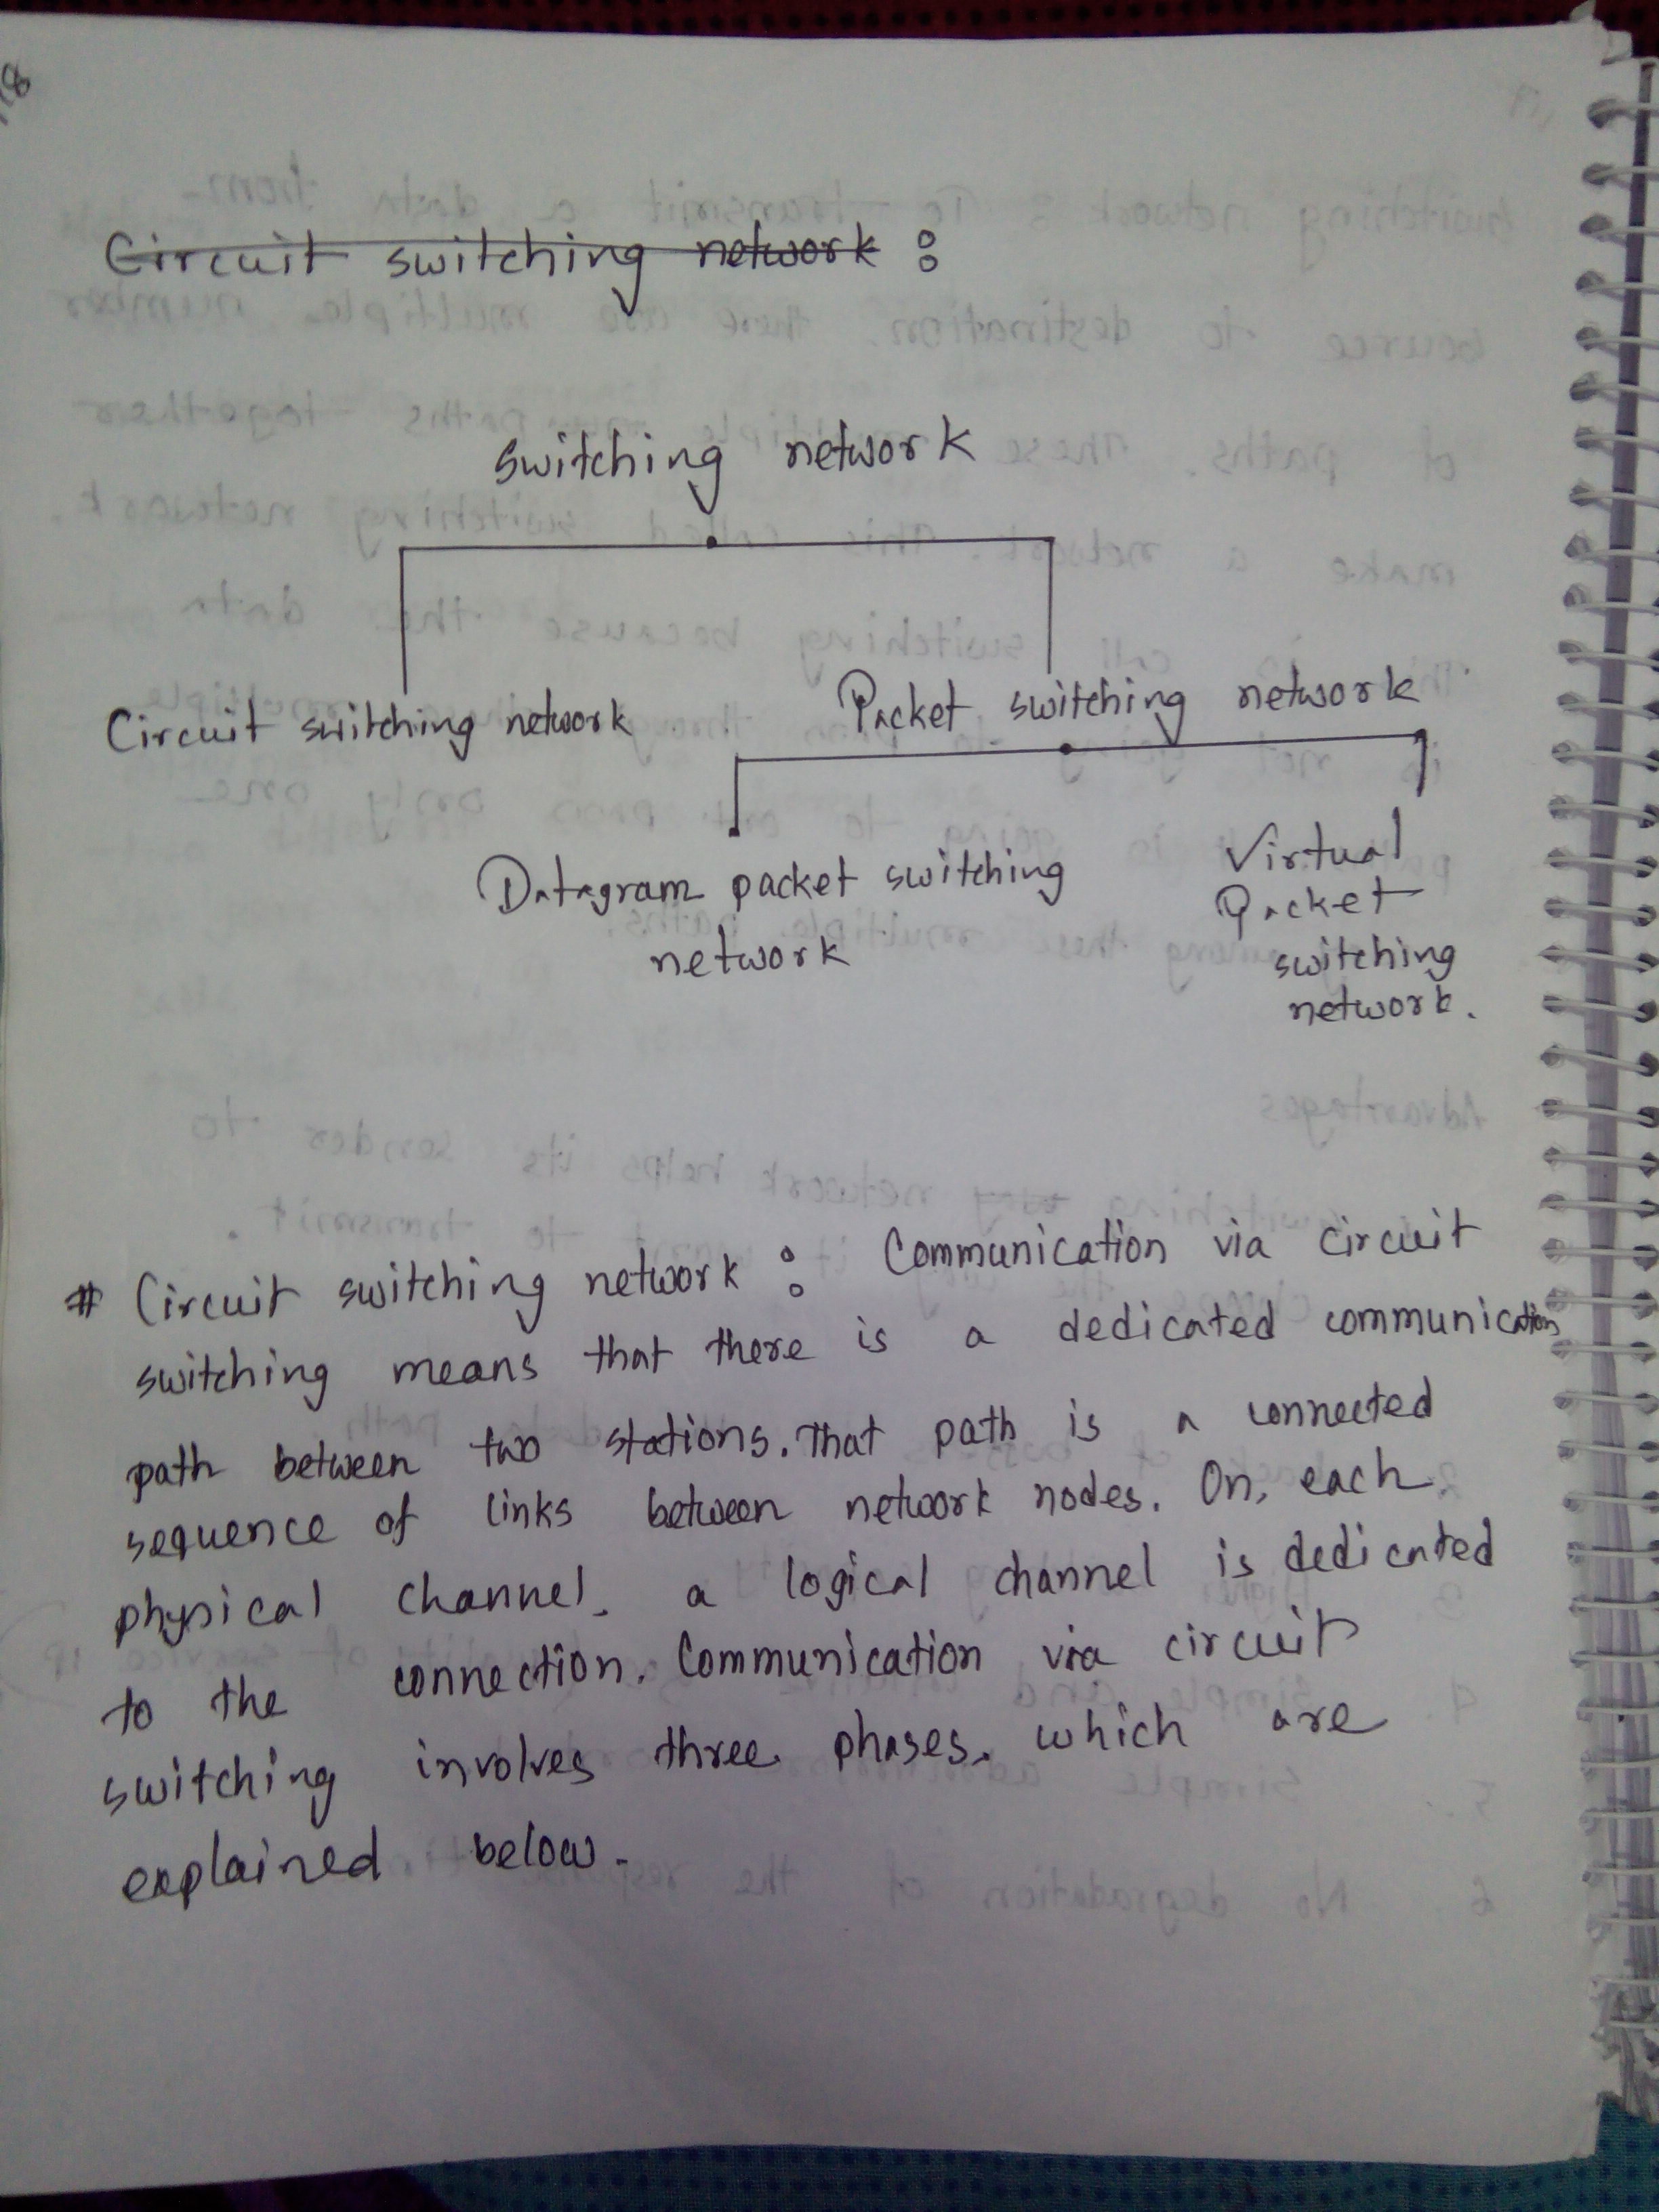 18
Circuit switching network :
switching network
Circuit switching network
Packet switching network
Datagram packet switching
network
Virtual
Packet
switching
network.
# Circuit switching network : Communication via circuit
switching means that there is a dedicated communication
path between two stations. That path is a connected
sequence of links between network nodes. On, each
physical channel, a logical channel is dedicated
to the connection. Communication via circuit
switching involves three phases, which are
explained below.